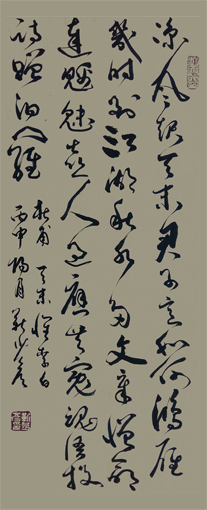 凉风起天末君子意如何鸿雁
几时到江湖秋水多文章憎命
达魑魅喜人过应共冤魂语投
诗赠汨罗
杜甫天末怀李白
丙申阳月